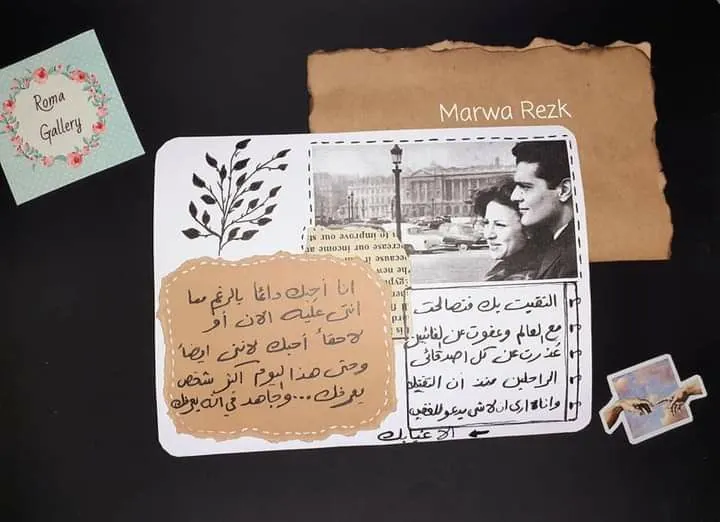 Roma
Gallery
Marwa Rezk
to improve our
our income
because it
new
انا أحبك دائمًا بالرغم مما
انتى عليه الان أو
لاحقاً أحبك لانني ايضاً
وحتى هذا اليوم اكثر شخص
يعرفك...واجاهد في انه يعرفك
التقيت بك فتصالحت
مع العالم وعفوت عن الفائتين
عذرت عن كل اصدقائى
الراحلين منذ ان التقيتك
وانا لا ارى ان لاشى يدعو للغضب
الا غيابك